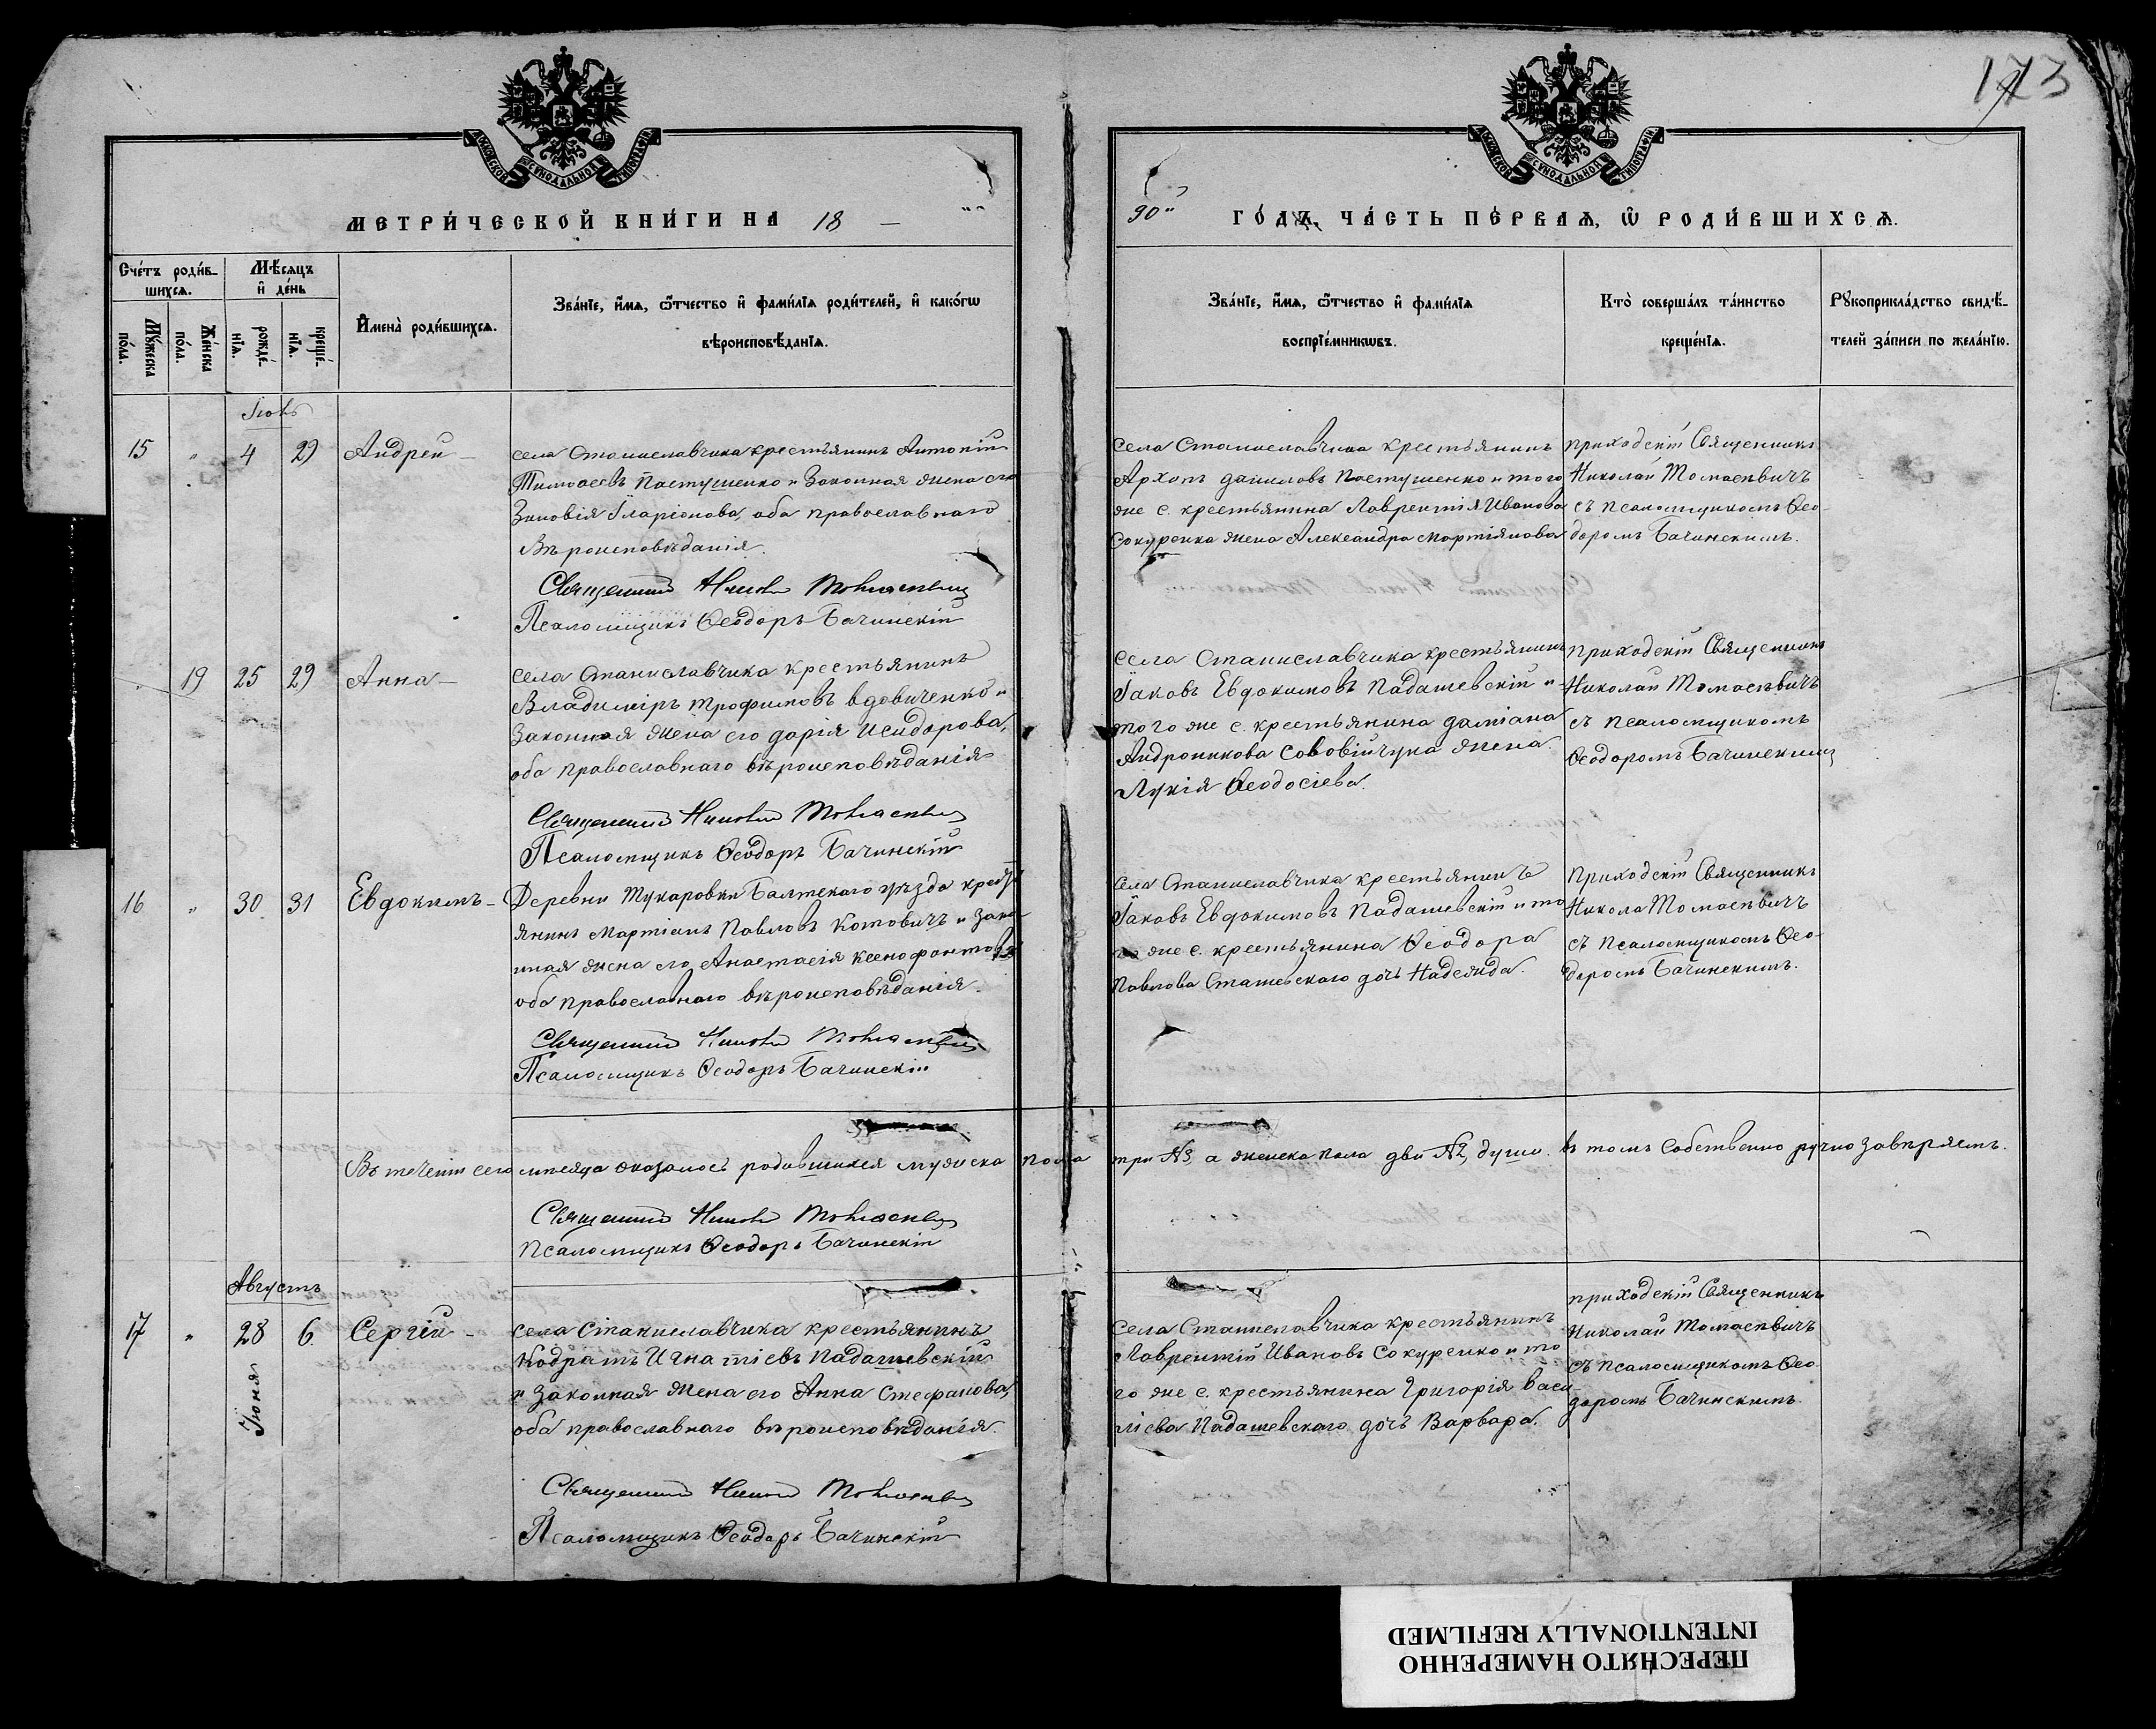 173
МОСКОВСКОЙ СѴНОДАЛЬНОЙ ТИПОГРАФІИ
МОСКОВСКОЙ СѴНОДАЛЬНОЙ ТИПОГРАФІИ
МЕТРИ́ЧЕСКОЙ КНИ́ГИ НА 18 —
90 ГО́ДЪ, ЧА́СТЬ ПЕ́РВАѦ, Ѡ҆ РОДИ́ВШИХСѦ.
Сче́тъ роди́в-
шихсѧ.
Мꙋ́жеска по́ла.
Же́нска по́ла.
Мѣ́сѧцъ
и҆ де́нь
рожде́-
нїѧ.
креще́-
нїѧ.
И҆мена̀ роди́вшихсѧ.
Зва́нїе, и҆́мѧ, ѻ҆́тчество и҆ фами́лїѧ роди́телей, и҆ како́гѡ
вѣроисповѣ́данїѧ.
Зва́нїе, и҆́мѧ, ѻ҆́тчество и҆ фами́лїѧ
воспрїе́мникѡвъ.
Кто̀ соверша́лъ та́инство
креще́нїѧ.
Рꙋкоприкла́дство свидѣ́-
телей за́писи по жела́нїю.
15 " 4 29 Андрей —
села Станиславчика крестьянинъ Антоній
Тимоѳеевъ Пастушенко и Законная жена его
Зиновія Іларіонова, оба православнаго
Вѣроисповѣданія.
Священникъ Николай Томасевичъ
Псаломщикъ Ѳеодоръ Бачинскій
села Станиславчика крестьянинъ
Архипъ даниловъ Пастушенко и того
же с. крестьянина Лаврентія Иванова
Сокуренка жена Александра Мартіянова
приходскій Священникъ
Николай Томасевичъ
съ псаломщикомъ Ѳео-
доромъ Бачинскимъ.
" 19 25 29 Анна —
села Станиславчика крестьянинъ
Владиміръ трофимовъ вдовиченко и
Законная жена его дарія Исидорова,
оба православнаго вѣроисповѣданія
Священникъ Николай Томасевичъ
Псаломщикъ Ѳеодоръ Бачинскій
села Станиславчика крестьянинъ
Іаковъ Евдокимовъ Падашевскій и
того же с. крестьянина даміана
Андроникова Соловійчука жена
Лукія Ѳеодосіева.
приходскій Священникъ
Николай Томасевичъ
съ псаломщикомъ
Ѳеодоромъ Бачинскимъ
16 " 30 31 Евдокимъ —
Деревни Тукаровки Балтскаго уѣзда кресть
янинъ Мартіанъ Павловъ Котовичъ и зако
нная жена его Анастасія ксенофонтова
оба православнаго вѣроисповѣданія.
Священникъ Николай Томасевичъ
Псаломщикъ Ѳеодоръ Бачинскій
села Станиславчика крестьянинъ
Іаковъ Евдокимовъ Падашевскій и то
го же с. крестьянина Ѳеодора
Павлова Сташевскаго дочь Надежда.
приходскій Священникъ
Никола Томасевичъ
съ псаломщикомъ Ѳео-
доромъ Бачинскимъ.
Въ теченіи сего мѣсяца оказалось родившихся мужеска пола три №3, а женска пола двѣ №2, души. въ томъ Собственно ручно завѣряемъ.
Священникъ Николай Томасевичъ
Псаломщикъ Ѳеодоръ Бачинскій
Августъ
17 " 28 6. Сергій —
Іюня
села Станиславчика крестьянинъ
Кодратъ Игнатіевъ Падашевскій
и Законная жена его Анна Стефанова,
оба православнаго вѣроисповѣданія.
Священникъ Николай Томасевичъ
Псаломщикъ Ѳеодоръ Бачинскій
села Станиславчика крестьянинъ
Лаврентій Ивановъ Сокуренко и то
го же с. крестьянина Григорія Васи-
ліева Падашевскаго дочь Варвара.
приходскій Священникъ
Николай Томасевичъ
съ псаломщикомъ Ѳео
доромъ Бачинскимъ
ПЕРЕСНЯТО НАМЕРЕННО
INTENTIONALLY REFILMED